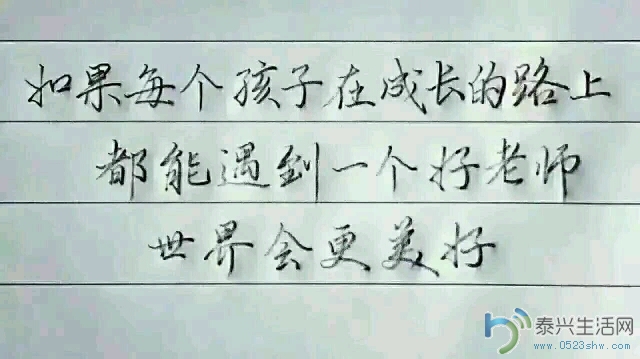 如果每个孩子在成长的路上
都能遇到一个好老师
世界会更美好
泰兴生活网
www.0523shw.com